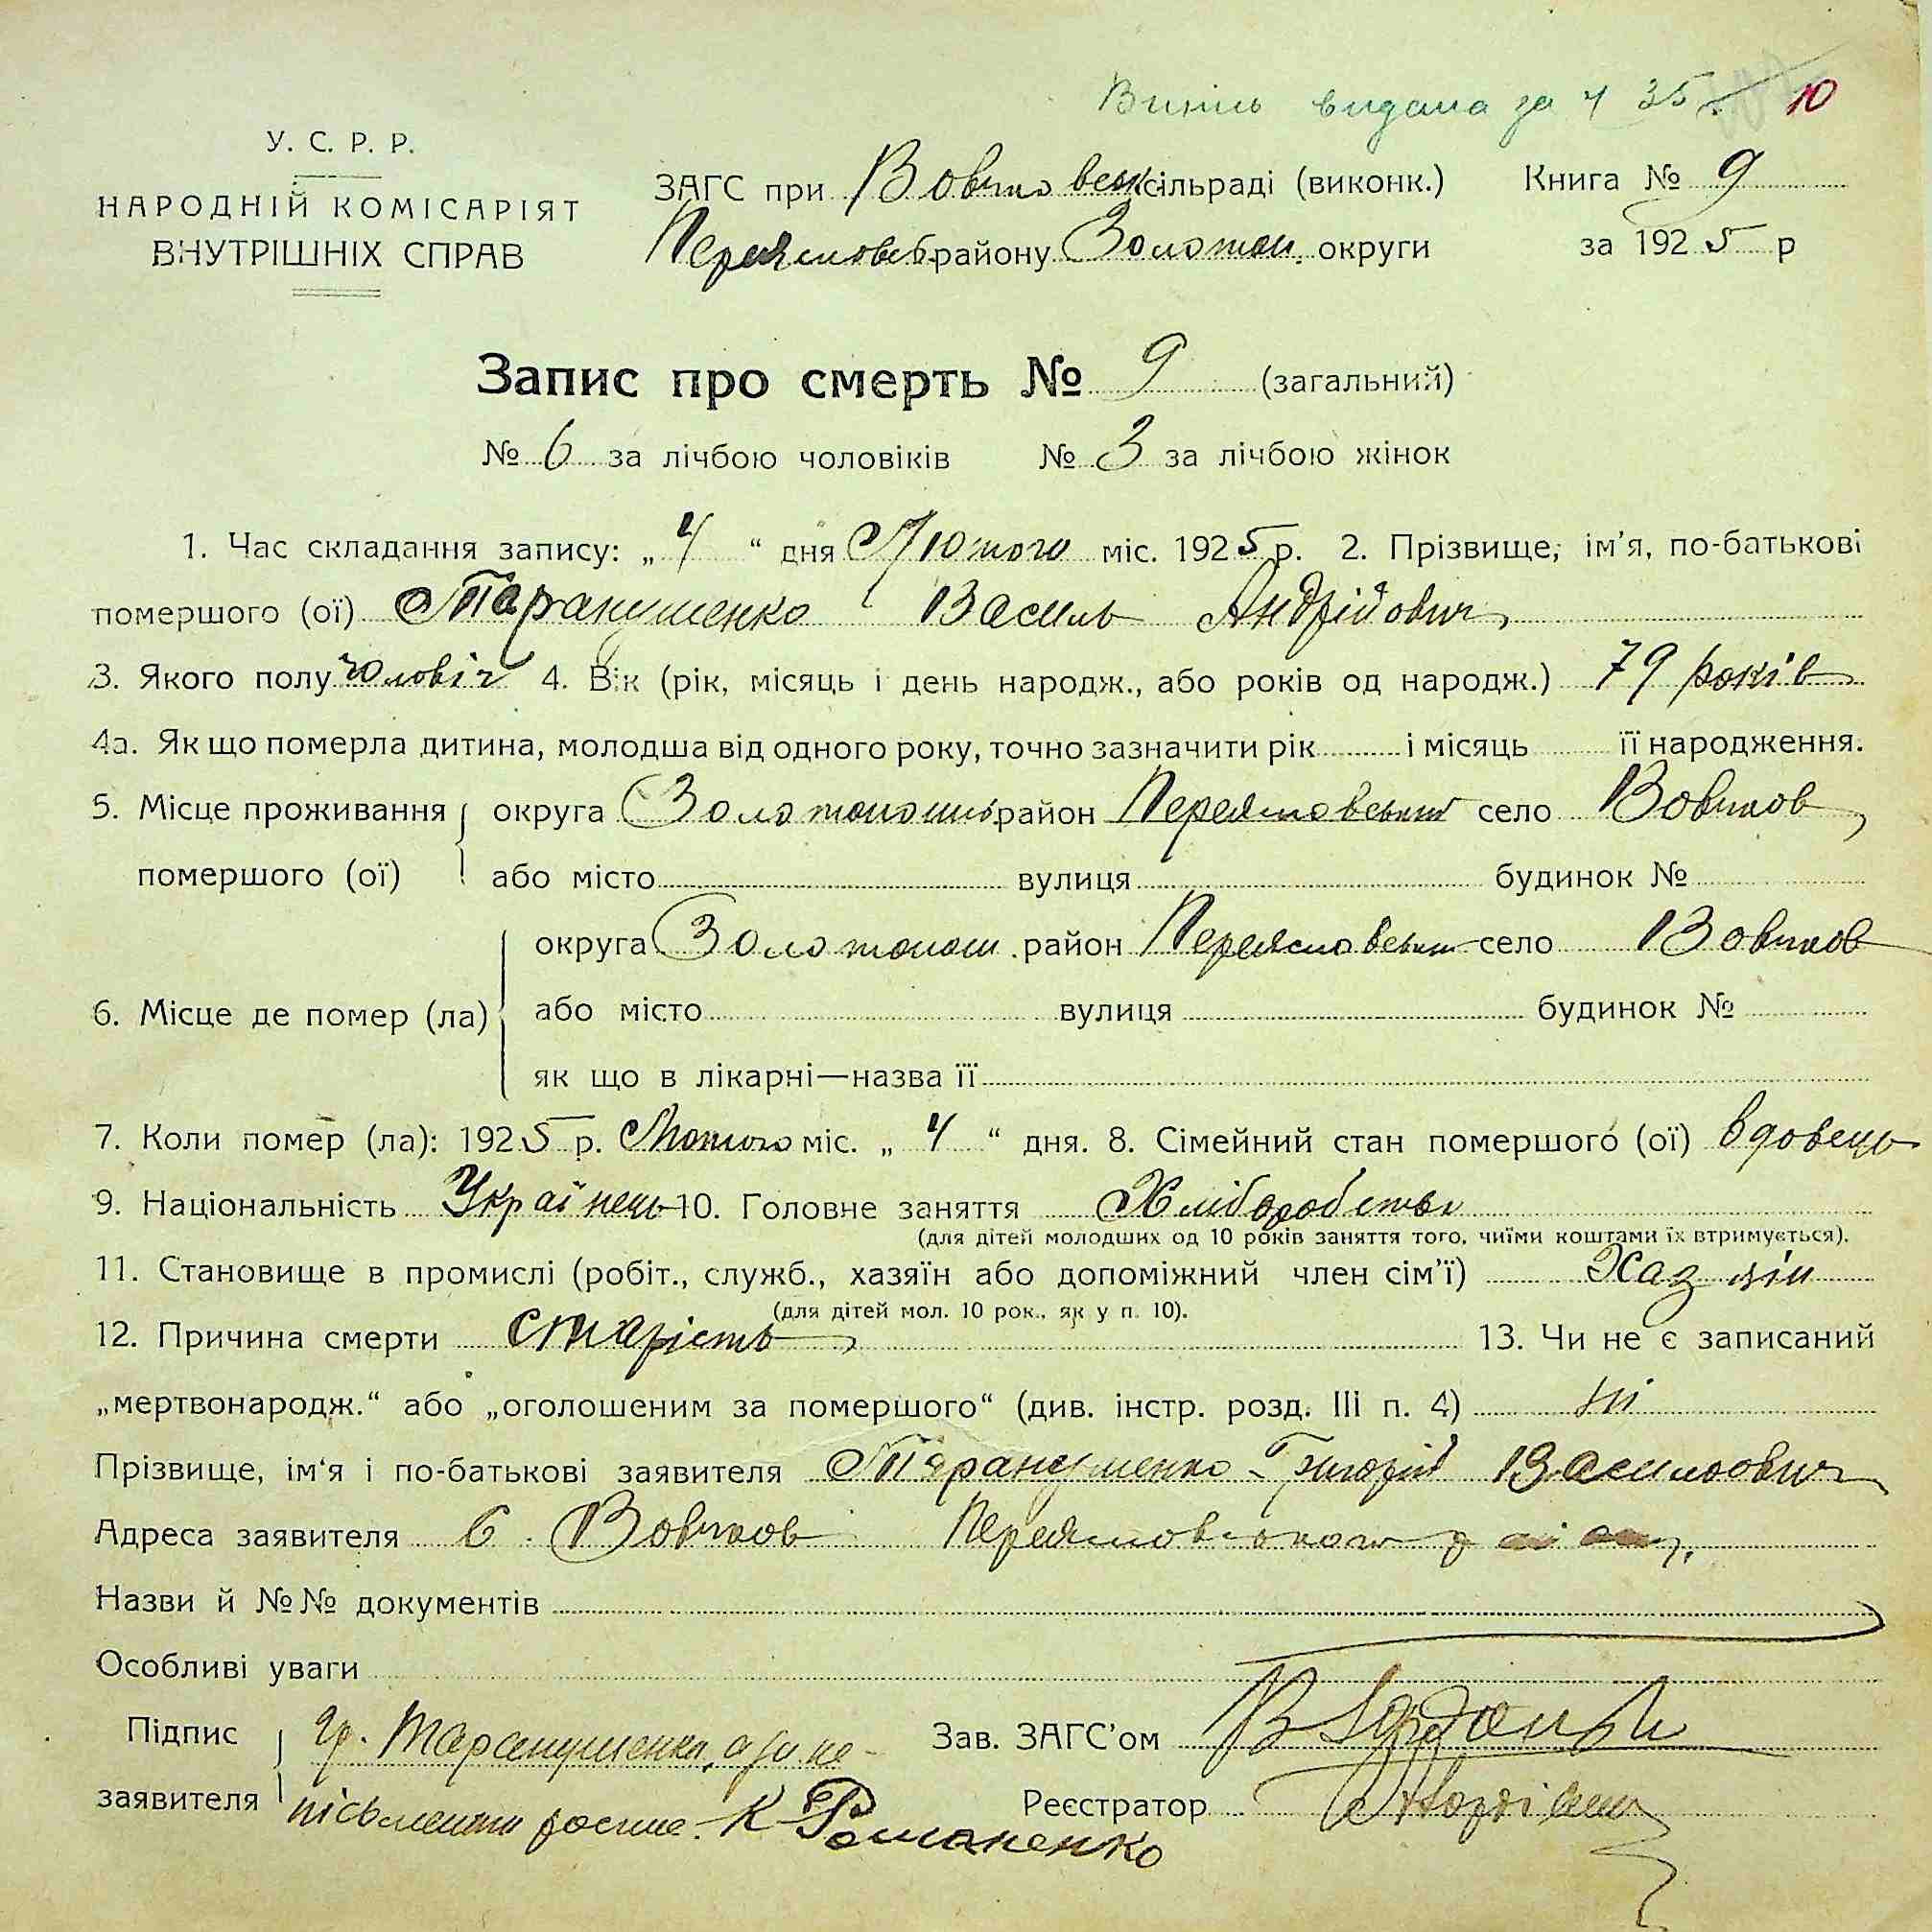 Випись видана за ч 35 10
У. С. Р. Р.
НАРОДНІЙ КОМІСАРІЯТ
ВНУТРІШНІХ СПРАВ
ЗАГС при Вовчковськ сільраді (виконк.) Книга № 9
Переяславськ району Золотон. округи за 1925 р
Запис про смерть № 9 (загальний)
№ 6 за лічбою чоловіків № 3 за лічбою жінок
1. Час складання запису: „4“ дня Лютого міс. 1925 р. 2. Прізвище, ім'я, по-батькові
помершого (ої) Таранушенко Василь Андрійович
3. Якого полу чоловіч 4. Вік (рік, місяць і день народж., або років од народж.) 79 років
4а. Як що померла дитина, молодша від одного року, точно зазначити рік і місяць її народження.
5. Місце проживання округа Золотоношськ район Переяславський село Вовчков
помершого (ої) або місто вулиця будинок №
округа Золотонош. район Переяславський село Вовчков
6. Місце де помер (ла) або місто вулиця будинок №
як що в лікарні—назва її
7. Коли помер (ла): 1925 р. Лютого міс. „4“ дня. 8. Сімейний стан помершого (ої) вдовець
9. Національність Українець 10. Головне заняття Хліборобство
(для дітей молодших од 10 років заняття того, чиїми коштами їх втримується).
11. Становище в промислі (робіт., служб., хазяїн або допоміжний член сім'ї) Хазяїн
(для дітей мол. 10 рок., як у п. 10).
12. Причина смерти старість 13. Чи не є записаний
„мертвонародж.“ або „оголошеним за помершого“ (див. інстр. розд. III п. 4) Ні
Прізвище, ім'я і по-батькові заявителя Таранушенко Григорій Васильович
Адреса заявителя с. Вовчков Переяславського району.
Назви й №№ документів
Особливі уваги
Підпис гр. Таранушенко, а за не- Зав. ЗАГС'ом
заявителя письменного роспис. К Романенко Реєстратор